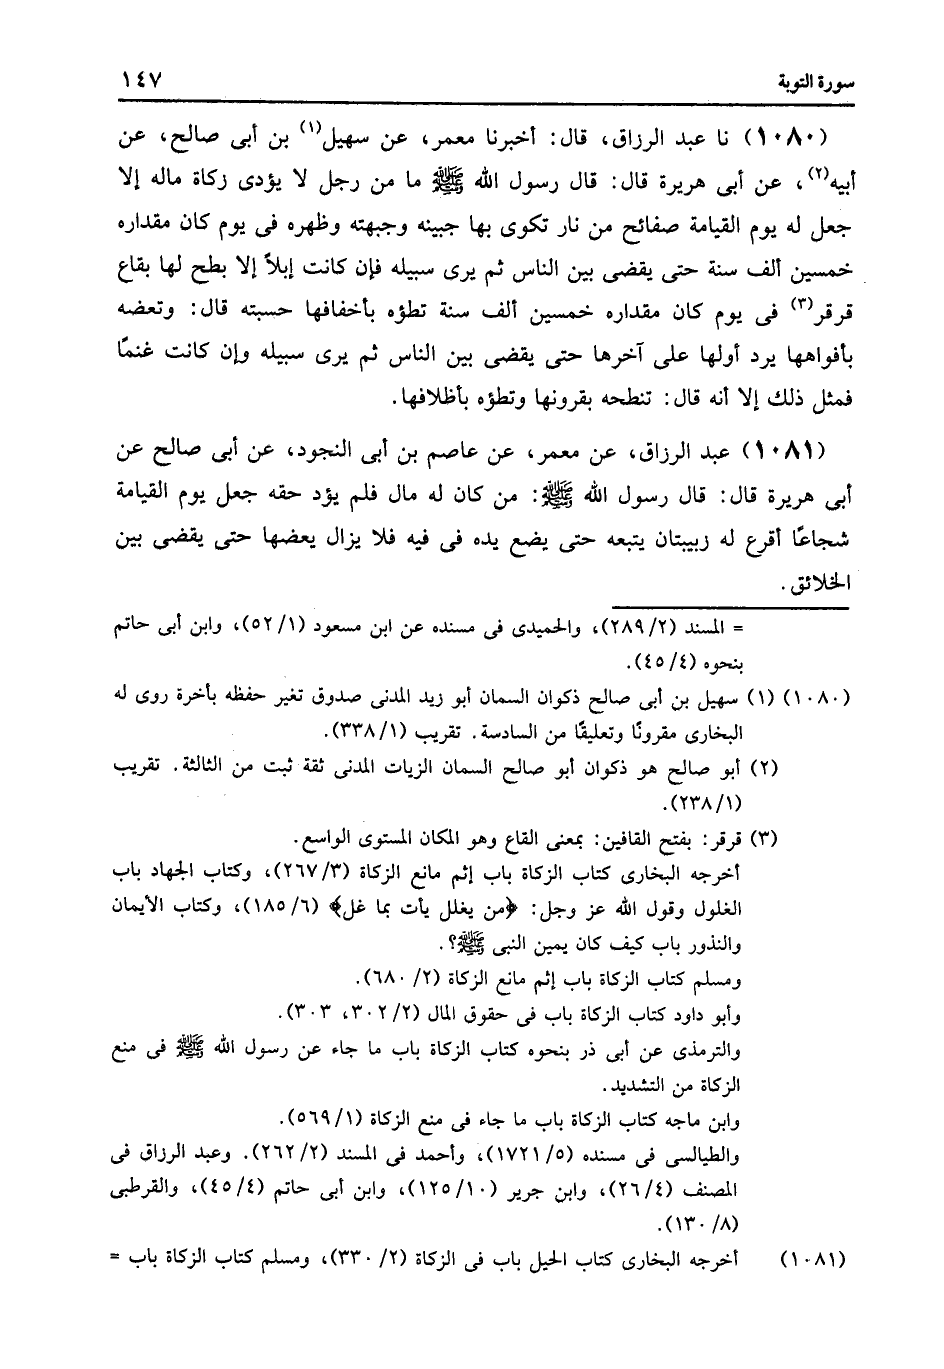 سورة التوبة ١٤٧
(١٠٨٠) نا عبد الرزاق، قال: أخبرنا معمر، عن سهيل(١) بن أبى صالح، عن
أبيه(٢)، عن أبى هريرة قال: قال رسول الله ﷺ ما من رجل لا يؤدى زكاة ماله إلا
جعل له يوم القيامة صفائح من نار تكوى بها جبينه وجبهته وظهره فى يوم كان مقداره
خمسين ألف سنة حتى يقضى بين الناس ثم يرى سبيله فإن كانت إبلاً إلا بطح لها بقاع
قرقر(٣) فى يوم كان مقداره خمسين ألف سنة تطؤه بأخفافها حسبته قال: وتعضه
بأفواهها يرد أولها على آخرها حتى يقضى بين الناس ثم يرى سبيله وإن كانت غنمًا
فمثل ذلك إلا أنه قال: تنطحه بقرونها وتطؤه بأظلافها.
(١٠٨١) عبد الرزاق، عن معمر، عن عاصم بن أبى النجود، عن أبى صالح عن
أبى هريرة قال: قال رسول الله ﷺ: من كان له مال فلم يؤد حقه جعل يوم القيامة
شجاعًا أقرع له زبيبتان يتبعه حتى يضع يده فى فيه فلا يزال يعضها حتى يقضى بين
الخلائق.
= المسند (٢/ ٢٨٩)، والحميدى فى مسنده عن ابن مسعود (١/ ٥٢)، وابن أبى حاتم
بنحوه (٤/ ٤٥).
(١٠٨٠) (١) سهيل بن أبى صالح ذكوان السمان أبو زيد المدنى صدوق تغير حفظه بأخرة روى له
البخارى مقرونًا وتعليقًا من السادسة. تقريب (١/ ٣٣٨).
(٢) أبو صالح هو ذكوان أبو صالح السمان الزيات المدنى ثقة ثبت من الثالثة. تقريب
(١/ ٢٣٨).
(٣) قرقر: بفتح القافين: بمعنى القاع وهو المكان المستوى الواسع.
أخرجه البخارى كتاب الزكاة باب إثم مانع الزكاة (٣/ ٢٦٧)، وكتاب الجهاد باب
الغلول وقول الله عز وجل: ﴿من يغلل يأت بما غل﴾ (٦/ ١٨٥)، وكتاب الأيمان
والنذور باب كيف كان يمين النبى ﷺ؟.
ومسلم كتاب الزكاة باب إثم مانع الزكاة (٢/ ٦٨٠).
وأبو داود كتاب الزكاة باب فى حقوق المال (٢/ ٣٠٢، ٣٠٣).
والترمذى عن أبى ذر بنحوه كتاب الزكاة باب ما جاء عن رسول الله ﷺ فى منع
الزكاة من التشديد.
وابن ماجه كتاب الزكاة باب ما جاء فى منع الزكاة (١/ ٥٦٩).
والطيالسى فى مسنده (٥/ ١٧٢١)، وأحمد فى المسند (٢/ ٢٦٢). وعبد الرزاق فى
المصنف (٤/ ٢٦)، وابن جرير (١٠/ ١٢٥)، وابن أبى حاتم (٤/ ٤٥)، والقرطبى
(٨/ ١٣٠).
(١٠٨١) أخرجه البخارى كتاب الحيل باب فى الزكاة (٢/ ٣٣٠)، ومسلم كتاب الزكاة باب =